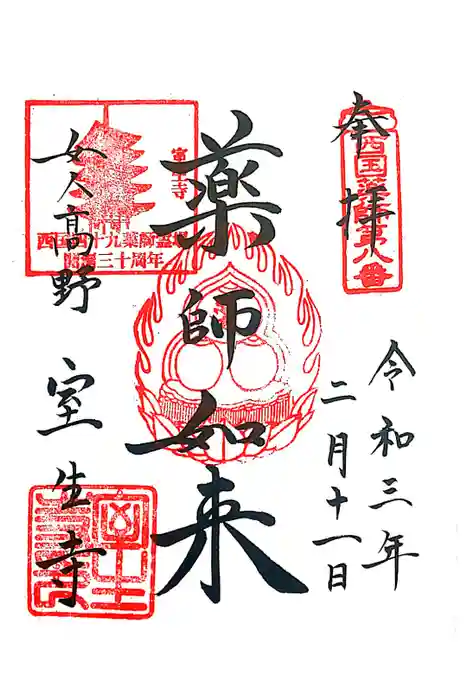 奉拝
西国薬師第八番
令和三年
二月十一日
薬師如来
室生寺
西国四十九薬師霊場
開創三十周年
女人高野 室生寺